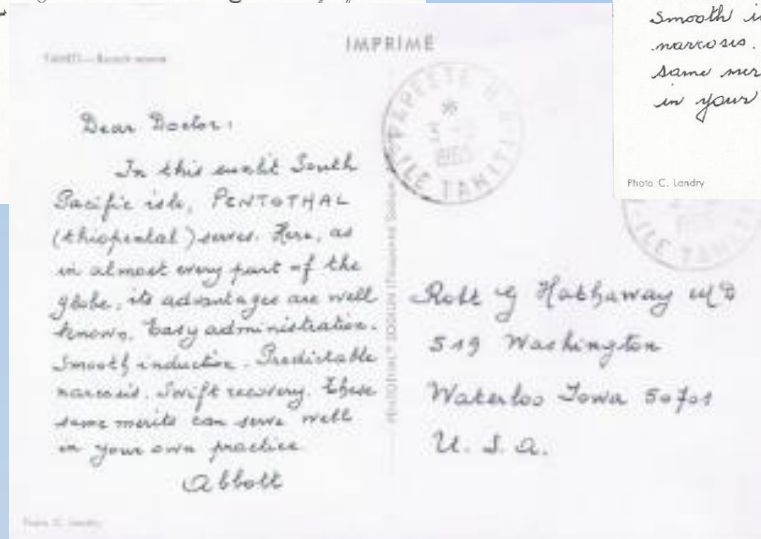 Smooth
narcosis.
same
in your
Photo C. Landry
TAHITI — scene
IMPRIMÉ
PAPEETE
ILE TAHITI
Dear Doctor:
In this sunlit South
Pacific isle, PENTOTHAL
(thiopental) serves. Here, as
in almost every part of the
globe, its advantages are well
known. Easy administration.
Smooth induction. Predictable
narcosis. Swift recovery. These
same merits can serve well
in your own practice
Abbott
Photo C. Landry
PENTOTHAL® SODIUM
Robt G Hathaway MD
519 Washington
Waterloo Iowa 50701
U. S. A.
ILE TAHITI